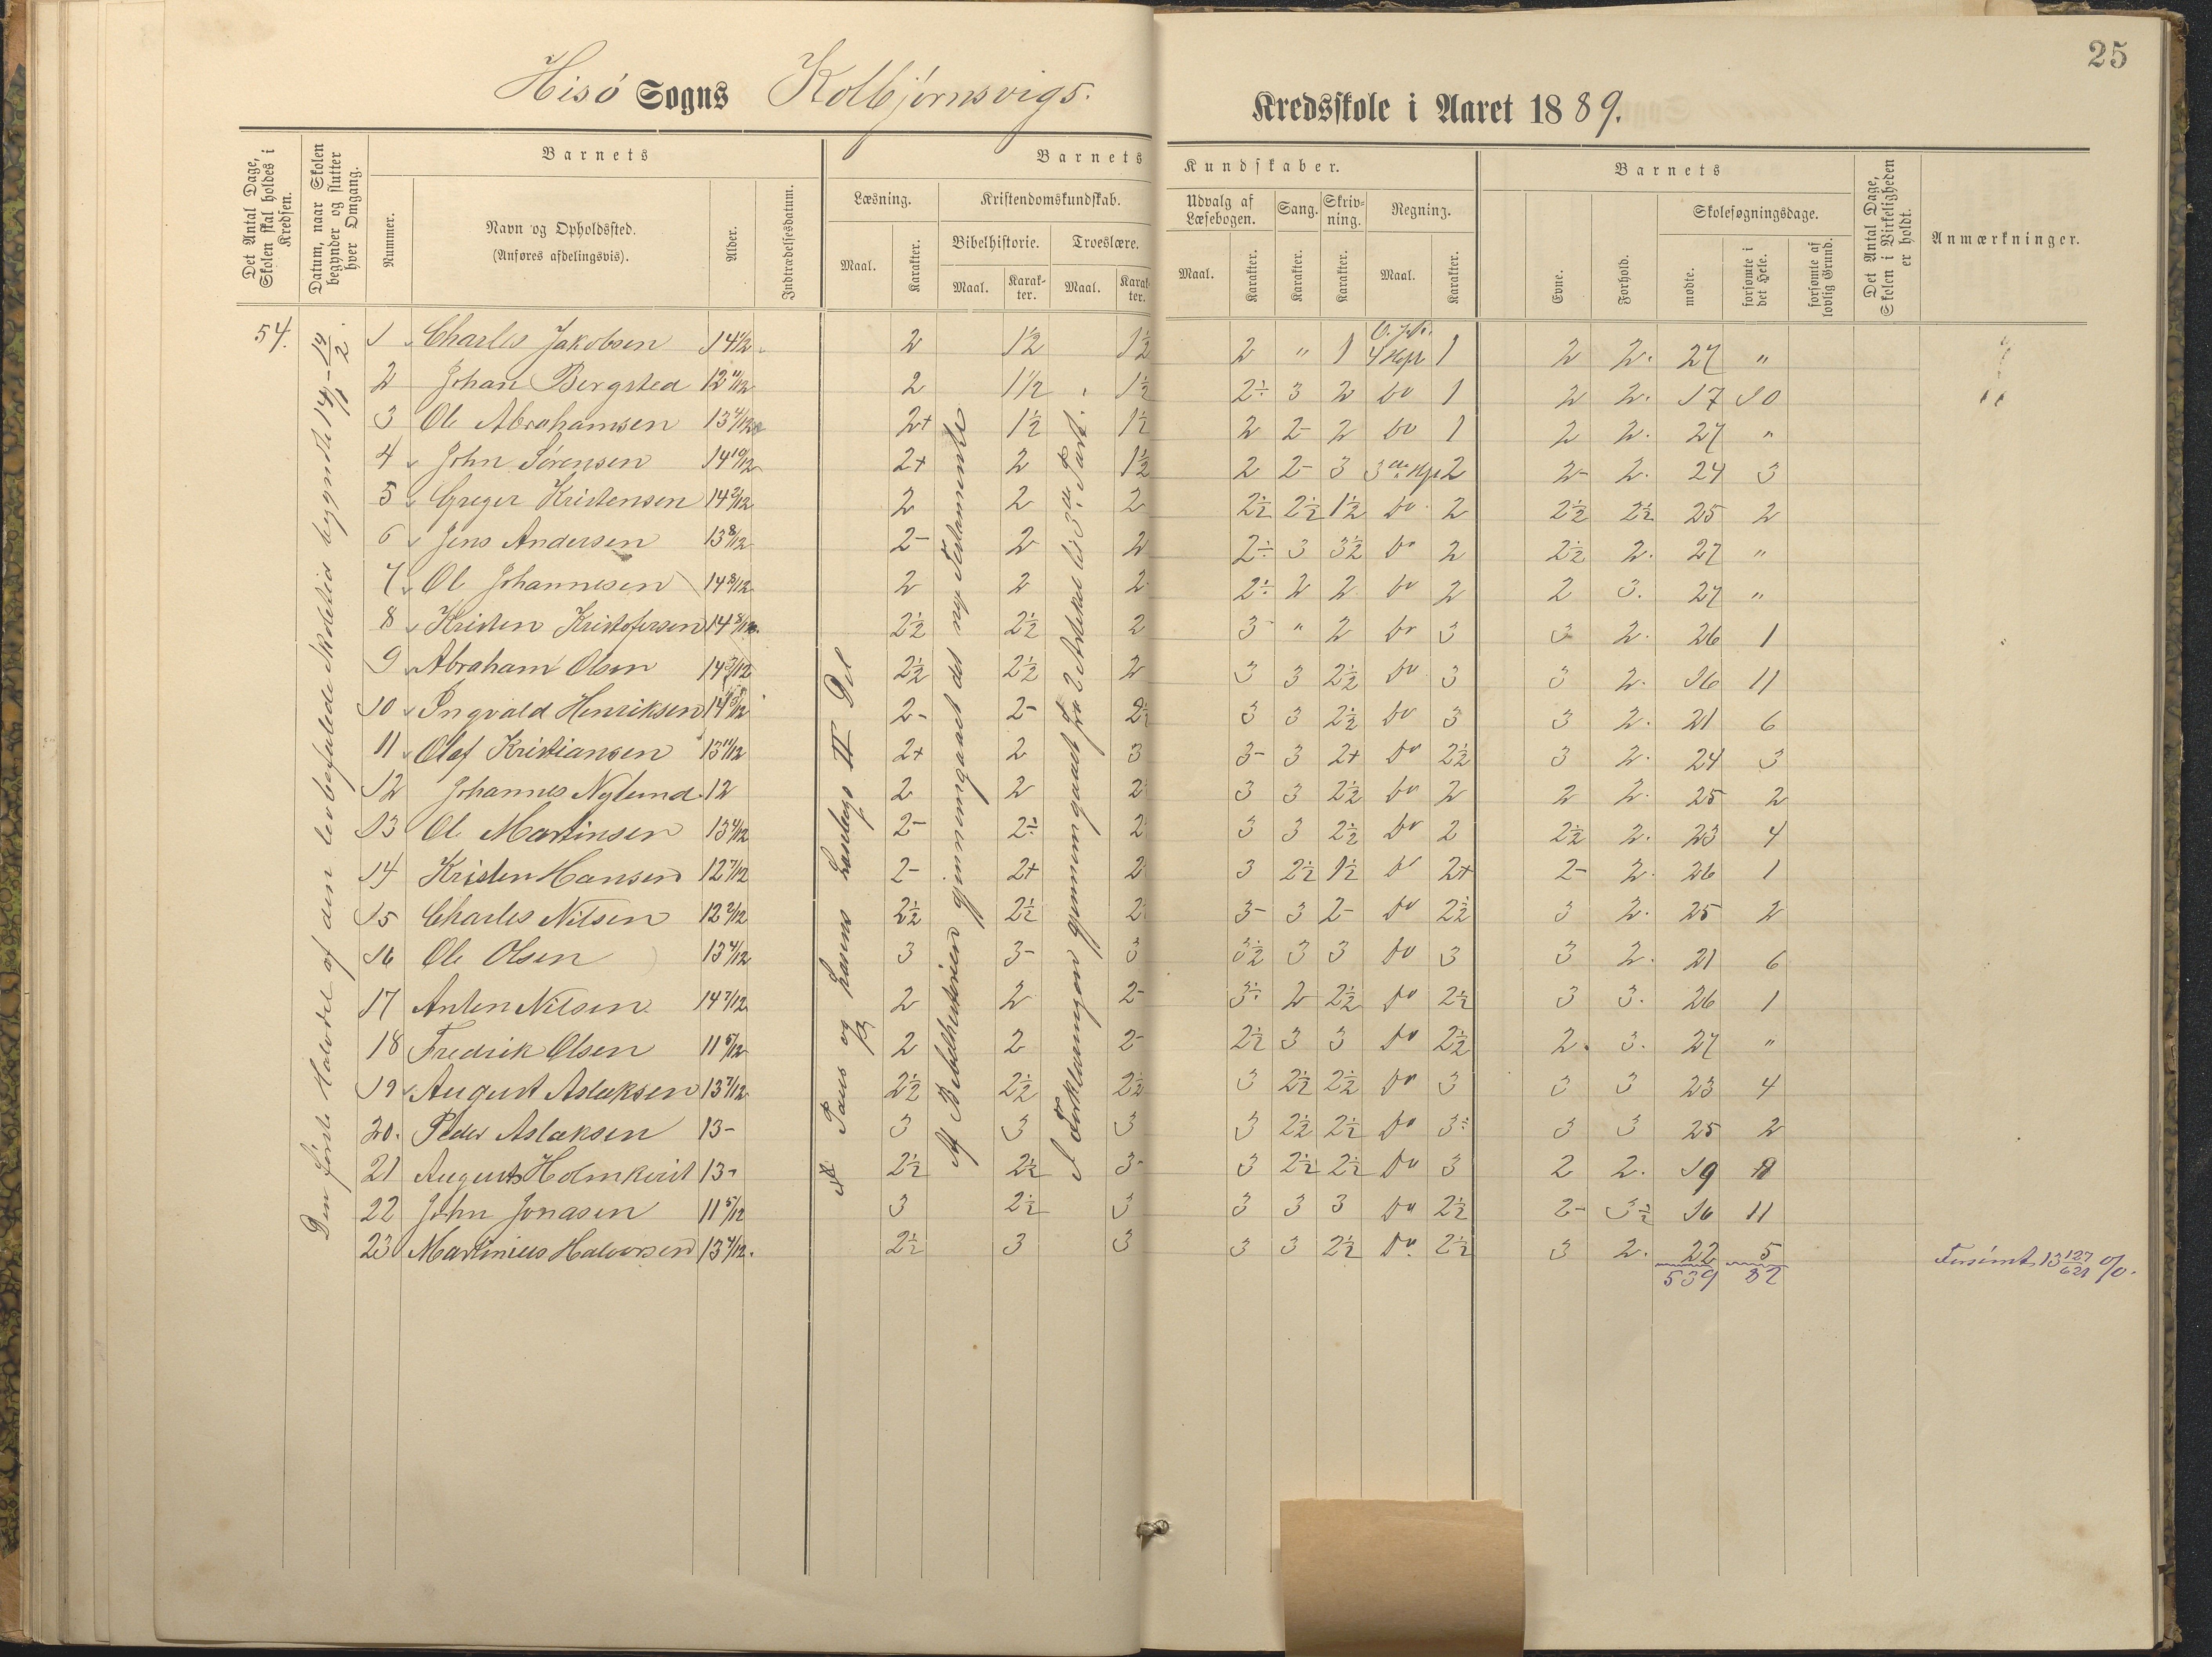 25
Hisö Sogns Kolbjørnsvigs.
Kredsskole i Aaret 1889.
Det Antal Dage, Skolen skal holdes i Kredsen.
Datum, naar Skolen begynder og slutter hver Omgang.
Barnets
Nummer.
Navn og Opholdssted.
(Anføres afdelingsvis).
Alder.
Indtrædelsesdatum.
Barnets Kundskaber.
Læsning.
Maal.
Karakter.
Kristendomskundskab.
Bibelhistorie.
Maal.
Karakter.
Troeslære.
Maal.
Karakter.
Udvalg af Læsebogen.
Maal.
Karakter.
Sang.
Karakter.
Skrivning.
Karakter.
Regning.
Maal.
Karakter.
Barnets
Evne.
Forhold.
Skolesøgningsdage.
mødte.
forsømte i det Hele.
forsømte af lovlig Grund.
Det Antal Dage, Skolen i Virkeligheden er holdt.
Anmærkninger.
54.
Den første Halvdel af den lovbefalede Skoletid begyndte 14/1 - 14/2.
Paus og Lassens Læsebogs II Del
Af Bibelhistorien gjennemgaaet det nye Testamente
I Forklaringen gjennemgaaet fra 2 Artikel til 3die Part.
1 Charles Jakobsen 2 1½ 1½ 2 " 1 1 2 2. 27 "
2 Johan Bergsted 12 11/12 2 1½ 1½ 2÷ 3 2 do 1 2 2. 17 10
3 Ole Abrahamsen 13 4/12 2+ 1½ 1½ 2 2- 2 do 1 2 2. 27 "
4 John Sørensen 14 10/12 2+ 2 1½ 2 2- 3 2 2- 2. 24 3
5 Greger Kristensen 14 2/12 2 2 2 2½ 2½ 1½ do 2 2½ 2½ 25 2
6 Jens Andersen 13 8/12 2- 2 2 2÷ 3 3½ do 2 2½ 2. 27 "
7 Ole Johannesen 14 8/12 2 2 2 2÷ 2 2 do 2 2 3. 27 "
8 Kristen Kristofersen 14 8/12 2½ 2½ 2 3- " 2 do 3 3 2. 26 1
9 Abraham Olsen 14 3/12 2½ 2½ 2 3 3 2½ do 3 3 2. 16 11
10 Ingvald Henriksen 2- 2- 2½ 3 3 2½ do 3 3 2. 21 6
11 Olaf Kristiansen 13 11/12 2+ 2 3 3- 3 2+ do 2½ 3 2. 24 3
12 Johannes Nylund 12 2 2 2 3 3 2½ do 2 2 2. 25 2
13 Ole Martinsen 13 4/12 2- 2÷ 2 3 3 2½ do 2 2½ 2. 23 4
14 Kristen Hansen 12 7/12 2- 2+ 2 3 2½ 1½ do 2+ 2- 2. 26 1
15 Charles Nilsen 12 2/12 2½ 2½ 2 3- 3 2- do 2½ 3 2. 25 2
16 Ole Olsen 13 4/12 3 3- 3 3½ 3 3 do 3 3 2. 21 6
17 Anton Nilsen 14 7/12 2 2 2- 3÷ 2 2½ do 2½ 3 3. 26 1
18 Fredrik Olsen 11 5/12 2 2 2- 2½ 3 3 do 2½ 2. 3. 27 "
19 August Aslaksen 13 7/12 2½ 2½ 2½ 3 2½ 2½ do 3 3 3 23 4
20. Peder Aslaksen 13- 3 3 3 3 2½ 2½ do 3÷ 3 3 25 2
21 August Holmkvist 13- 2½ 2½ 3- 3 2½ 2½ do 3 2 2. 19 8
22 John Jonasen 11 5/12 3 2½ 3 3 3 3 do 2½ 2- 3½ 16 11
23 Martinius Halvorsen 13 4/12. 2½ 3 3 3 3 2½ do. 2½ 3 2. 22 5
539 82
Forsømt 13 127/621 %.